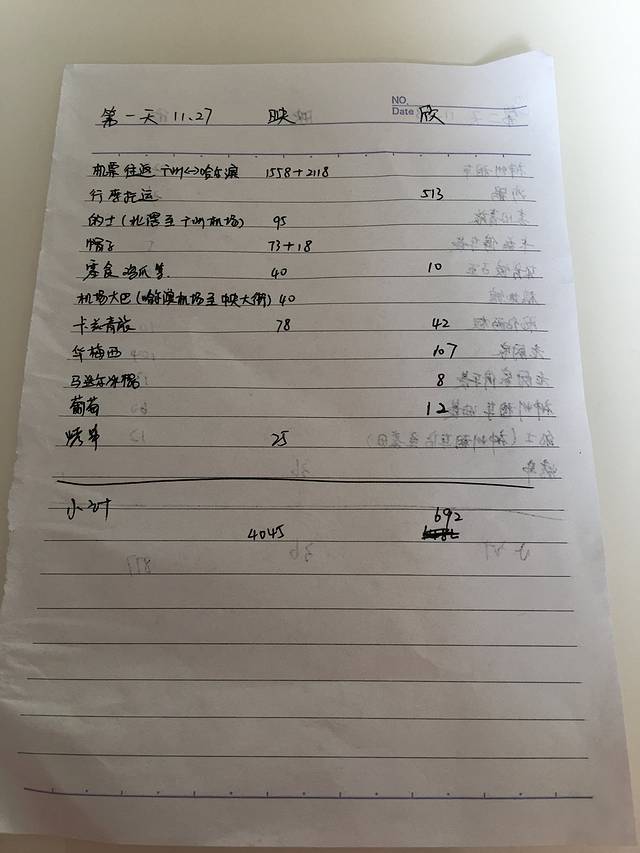 NO.
第一天 11.27 映 Date 欣
机票往返 广州<->哈尔滨 1558+2118
行李托运 513
的士(北滘至广州机场) 95
帽子 73+18
零食鸡爪等 40 10
机场大巴(哈尔滨机场至中央大街) 40
卡兹青旅 78 42
华梅西 107
马迭尔冰棍 8
葡萄 12
烤串 25
小计
692
4045